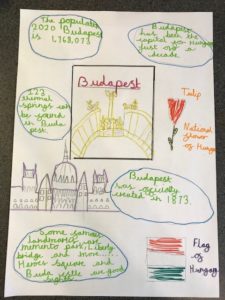 The population
2020 Budapest
is 1,768,073
Budapest
has been the
capital for Hungary
just over a
decade.
Budapest
123
thermal
springs can
be found
in Buda
pest.
Tulip
National
flower
of Hungary
Budapest
was actually
created in 1873.
Some famous
landmarks are
memento park, Liberty
bridge and more...
Heroes Square and
Buda castle are good
sights.
Flag
of
Hungary